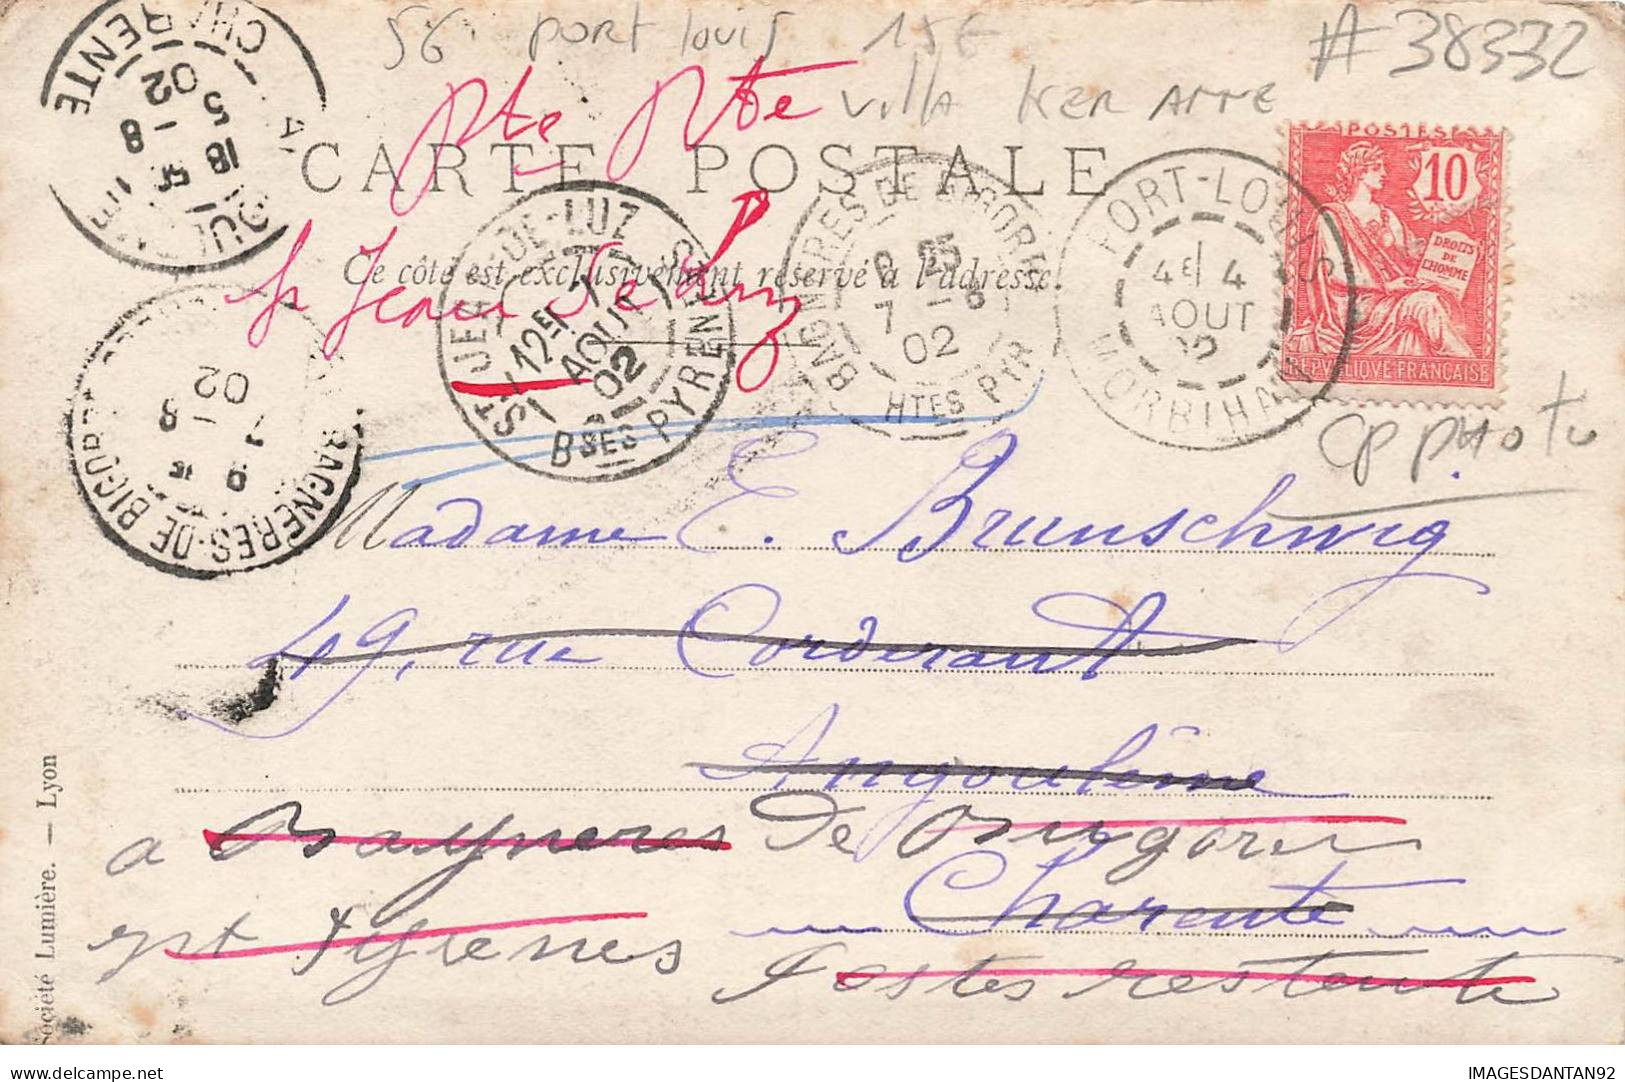 56 port louis 15€
#38332
Villa ker Anne
Pte Rte
CARTE POSTALE
Ce côté est exclusivement réservé à l'adresse.
St Jean de Luz
POSTES
10
DROITS
DE
L'HOMME
REPVBLIQVE FRANÇAISE
PORT-LOUIS
4E 4
AOUT
02
MORBIHAN
BAGNERES DE BIGORRE
7 -8
02
HTES PYR
ST JEAN-DE-LUZ
12E
AOUT
02
BSES PYRENEES
CHARENTE
18
5 -8
02
BAGNERES-DE-BIGORRE
7 -8
02
cp photo
Madame E. Brunschwig
49, rue Corderant
Angoulême
a Bagneres De Bigorre
Charente
hpt Pyrenes
Postes restente
Société Lumière. — Lyon
IMAGESDANTAN92